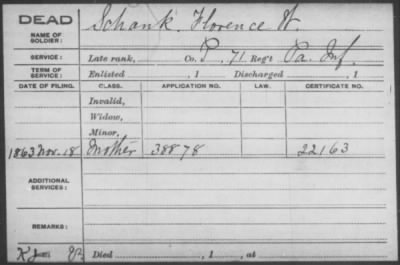 DEAD
NAME OF SOLDIER: Schank, Florence W.
SERVICE: Late rank, Co. P, 71 Reg't Pa. Inf.
TERM OF SERVICE: Enlisted , 1 Discharged , 1
DATE OF FILING. CLASS. APPLICATION NO. LAW. CERTIFICATE NO.
Invalid,
Widow,
Minor,
1863 Nov. 18 Mother 38878 22163
ADDITIONAL SERVICES:
REMARKS:
Died , 1 , at